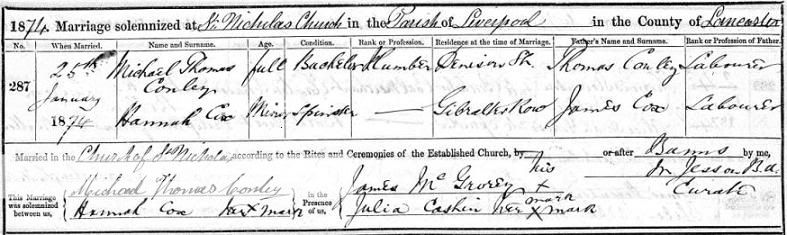 1874. Marriage solemnized at St. Nicholas Church in the Parish of Liverpool in the County of Lancaster
No. When Married. Name and Surname. Age. Condition. Rank or Profession. Residence at the time of Marriage. Father's Name and Surname. Rank or Profession of Father.
287 25th January 1874 Michael Thomas Conley full Bachelor Plumber Denison St. Thomas Conley Labourer
Hannah Cox Minor Spinster — Gibraltar Row James Cox Labourer
Married in the Church of St Nicholas according to the Rites and Ceremonies of the Established Church, by or after Banns by me,
This Marriage was solemnized between us, Michael Thomas Conley
Hannah Cox her x mark
in the Presence of us, James Mc his x mark
Julia Cashin her x mark
Jesson B.A. Curate